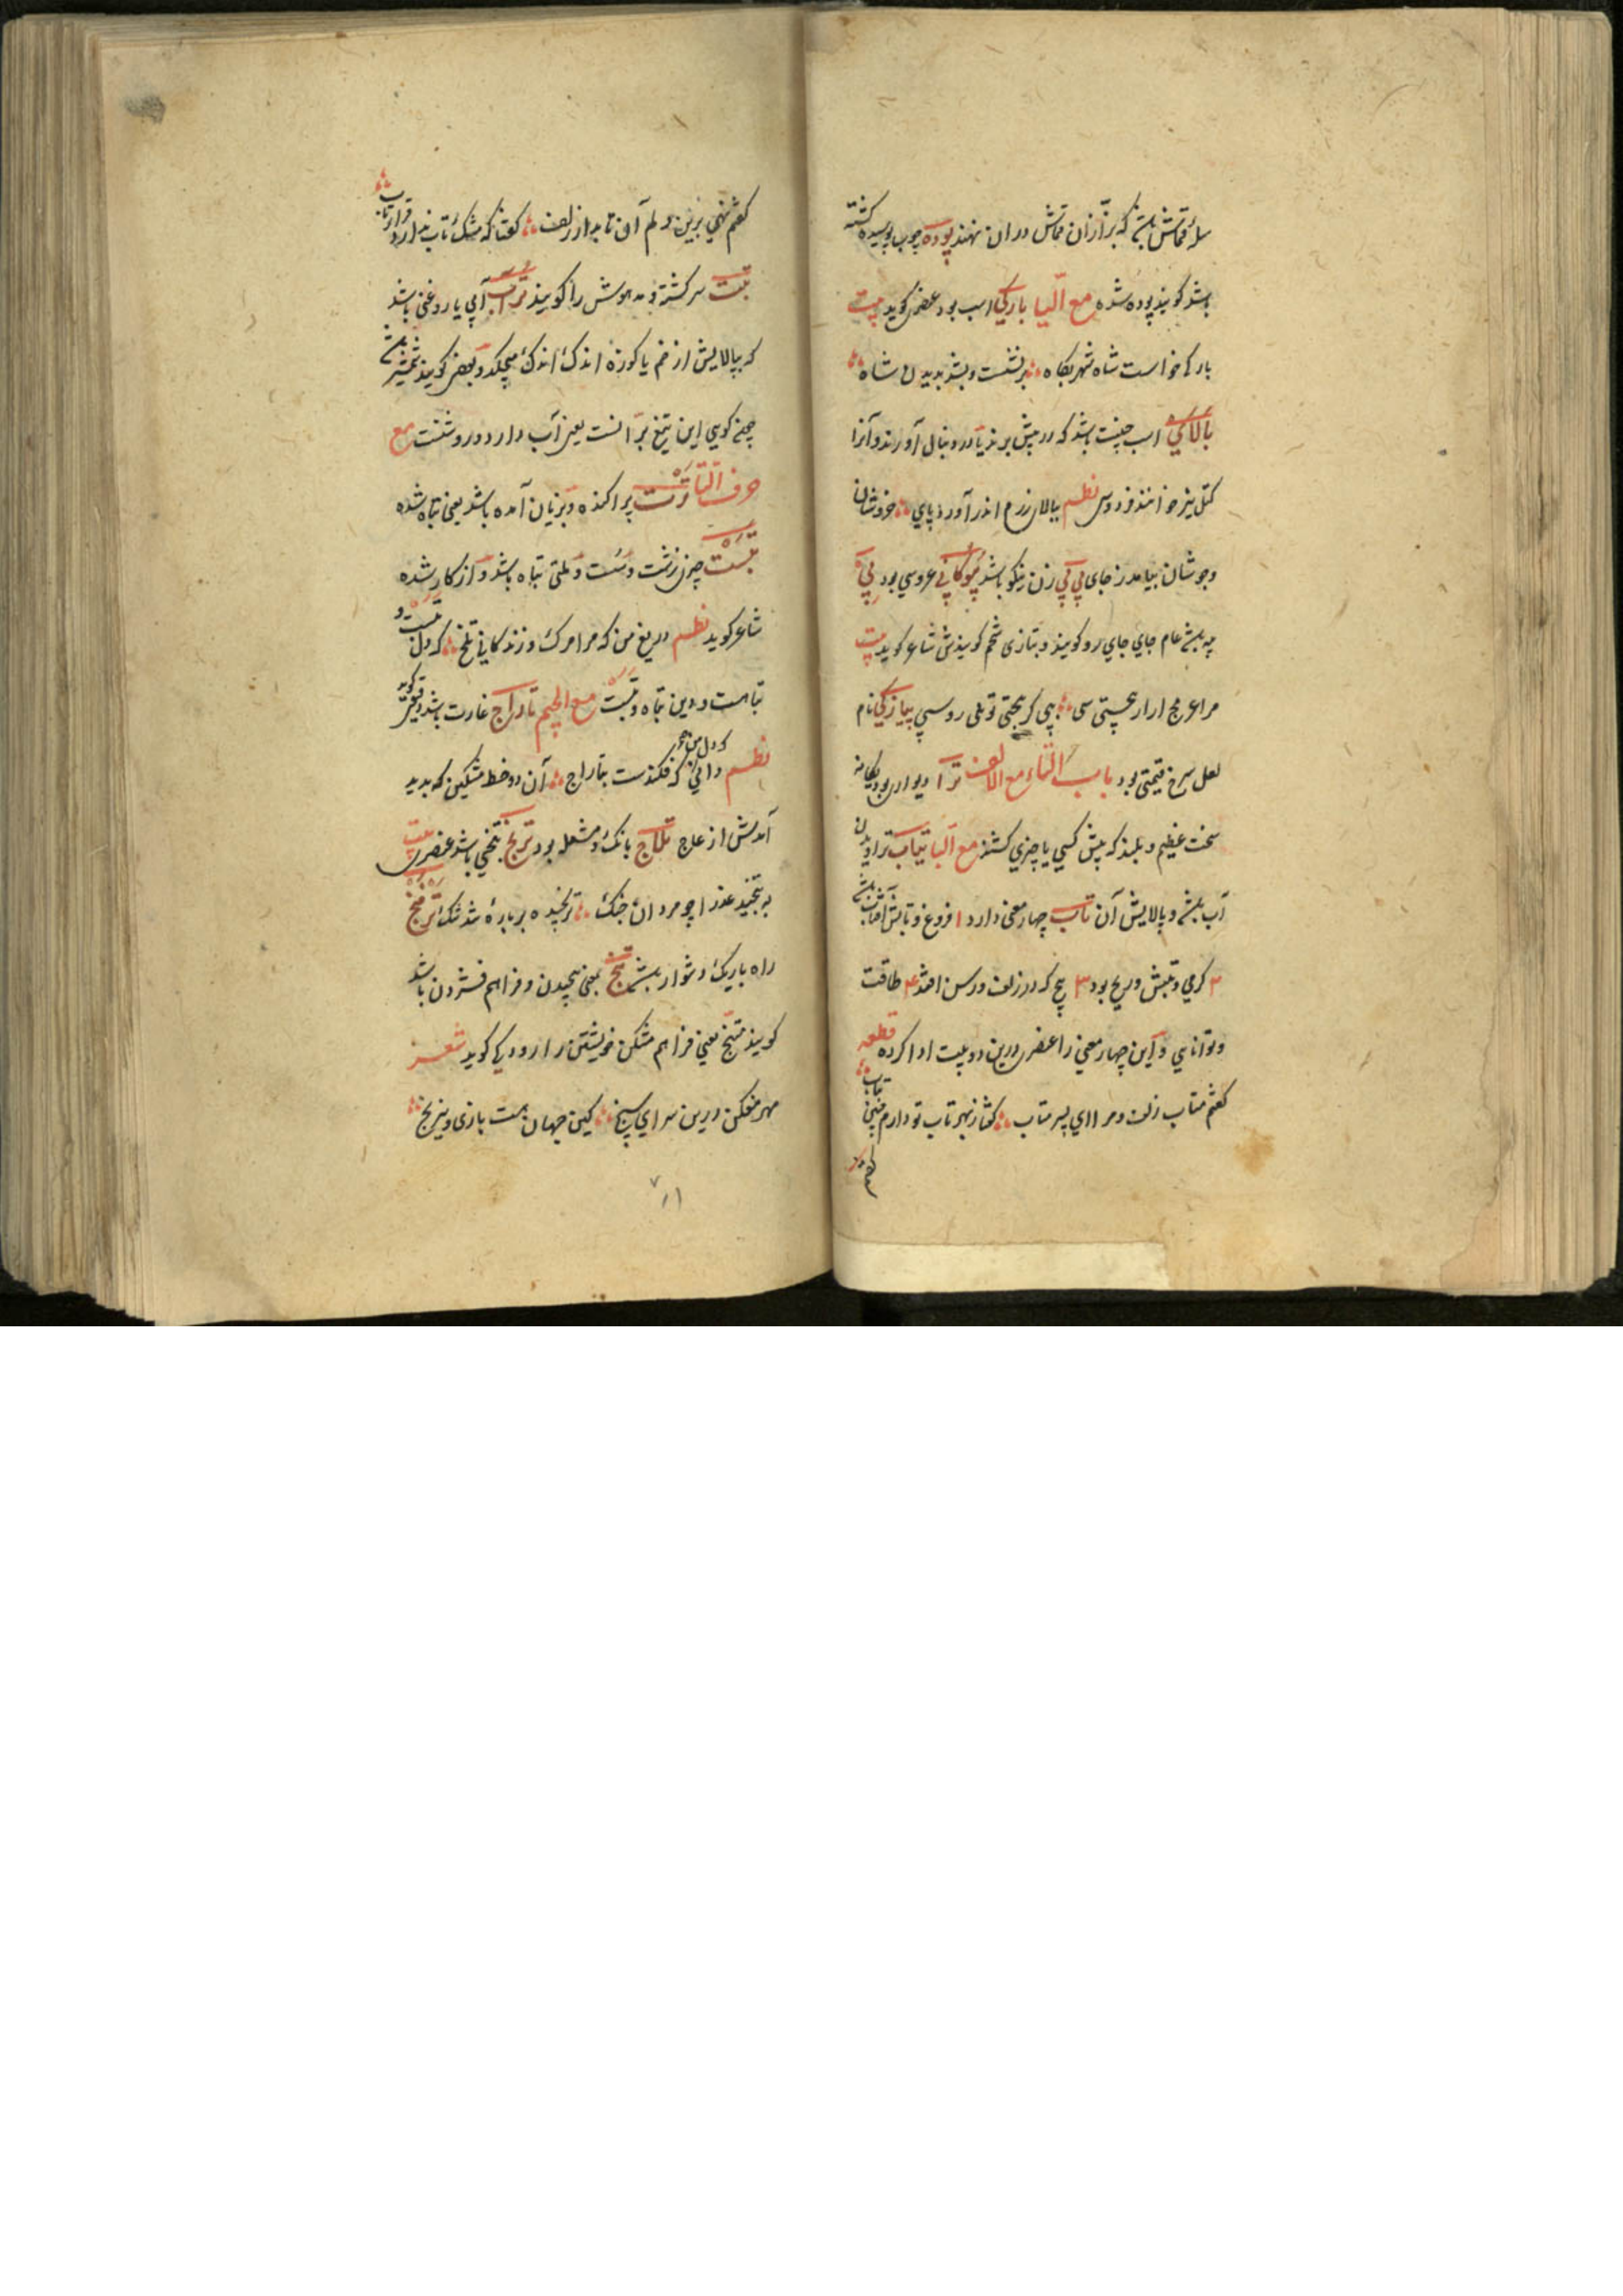 سلهٔ قماش باشد که بزازان قماش در ان نهند پوده چوب پوسیده کشته
باشد کویند پوده شده مع الیا بارکی اسب بود عنصری کوید بیت
بارکی خواست شاه شهر بکاه برنشست و بشد بدیدن شاه
بالاکی اسب جنیبت باشد که در پیش برند یا در دنبال آورند و آنرا
کتل نیز خوانند فردوسی نظم ببالای رزم اندر آورد پای خروشان
وجوشان بیامد ز جای پی پی زن نیکو باشد بیوکانی عروسی بود پی
پیه باشد عام جای جای رو کویند و بتازی شحم کویندش شاعر کوید بیت
مرا عرج ار ار بچستی سی پی کر بجتی توی روسپی پیازکی نام
لعل سرخ قیمتی بود باب التاء مع الالف ترا دیواری بود یکانه
سخت عظیم و بلند که پیش کسی یا چیزی کشند مع البا تیاب تراویدن
آب باشد و پالایش آن تاب چهار معنی دارد ۱ فروغ و تابش آفتاب باشد
۲ کرمی و تبش و ریح بود ۳ پیچ که در زلف و رسن افتد ۴ طاقت
وتوانایی و این چهار معنی را عنصری درین دو بیت ادا کرده قطعه
کفتم متاب زلف ومرا ای پسر متاب کفتا ز بهر تاب تو دارم چنین تاب
کفتم
کفتم نهی برین دلم آن تابدار زلف کفتا که مشک تاب ندارد قرار تاب
تبت سرکشته و مدهوش را کویند تراب آبی یا روغنی باشد
که بپالایش از خم یا کوزه اندک اندک میچکد و بعضی کویند شمشیر باشد
چنانچه کویی این تیغ براست یعنی آب دارد و روشنست مع
حرف التا ترت پراکنده و بزیان آمده باشد یعنی تباه شده
تبست چیزی زشت و سست و ملتی تباه باشد و از کار شده
شاعر کوید نظم دریغ من که مرا مرک و زندکانی تلخ که دل تبست و
تباهست و دین تباه و تبست مع الجیم تاراج غارت باشد دقیقی کوید
نظم دانی که دل من که فکندست بتاراج آن دو خط مشکین که پدید
آمدش از عاج تلاج بانک و مشغله بود ترنج تنجی باشد عنصری بیت
به تنجید عذرا چو مردان جنک ترنجیده بر باره شد تنک ترفنج
راه باریک دشوار باشد تنج بمعنی پیچیدن و فراهم فشردن باشد
کویند متنج یعنی فراهم مشکن خویشتن را رودکی کوید شعر
مهر مفکن درین سرای سپنج کین جهان هست بازی و نیرنج
۱۱۷